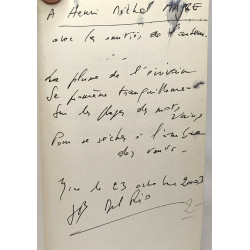 A Henri Michel
avec les amitiés de l'auteur.
La plume de l'écrivain
Se promène tranquillement
Sur les plages des mots
vains
Pour se sécher à l'
des
le 23 octobre 2003
Del Rio
2-